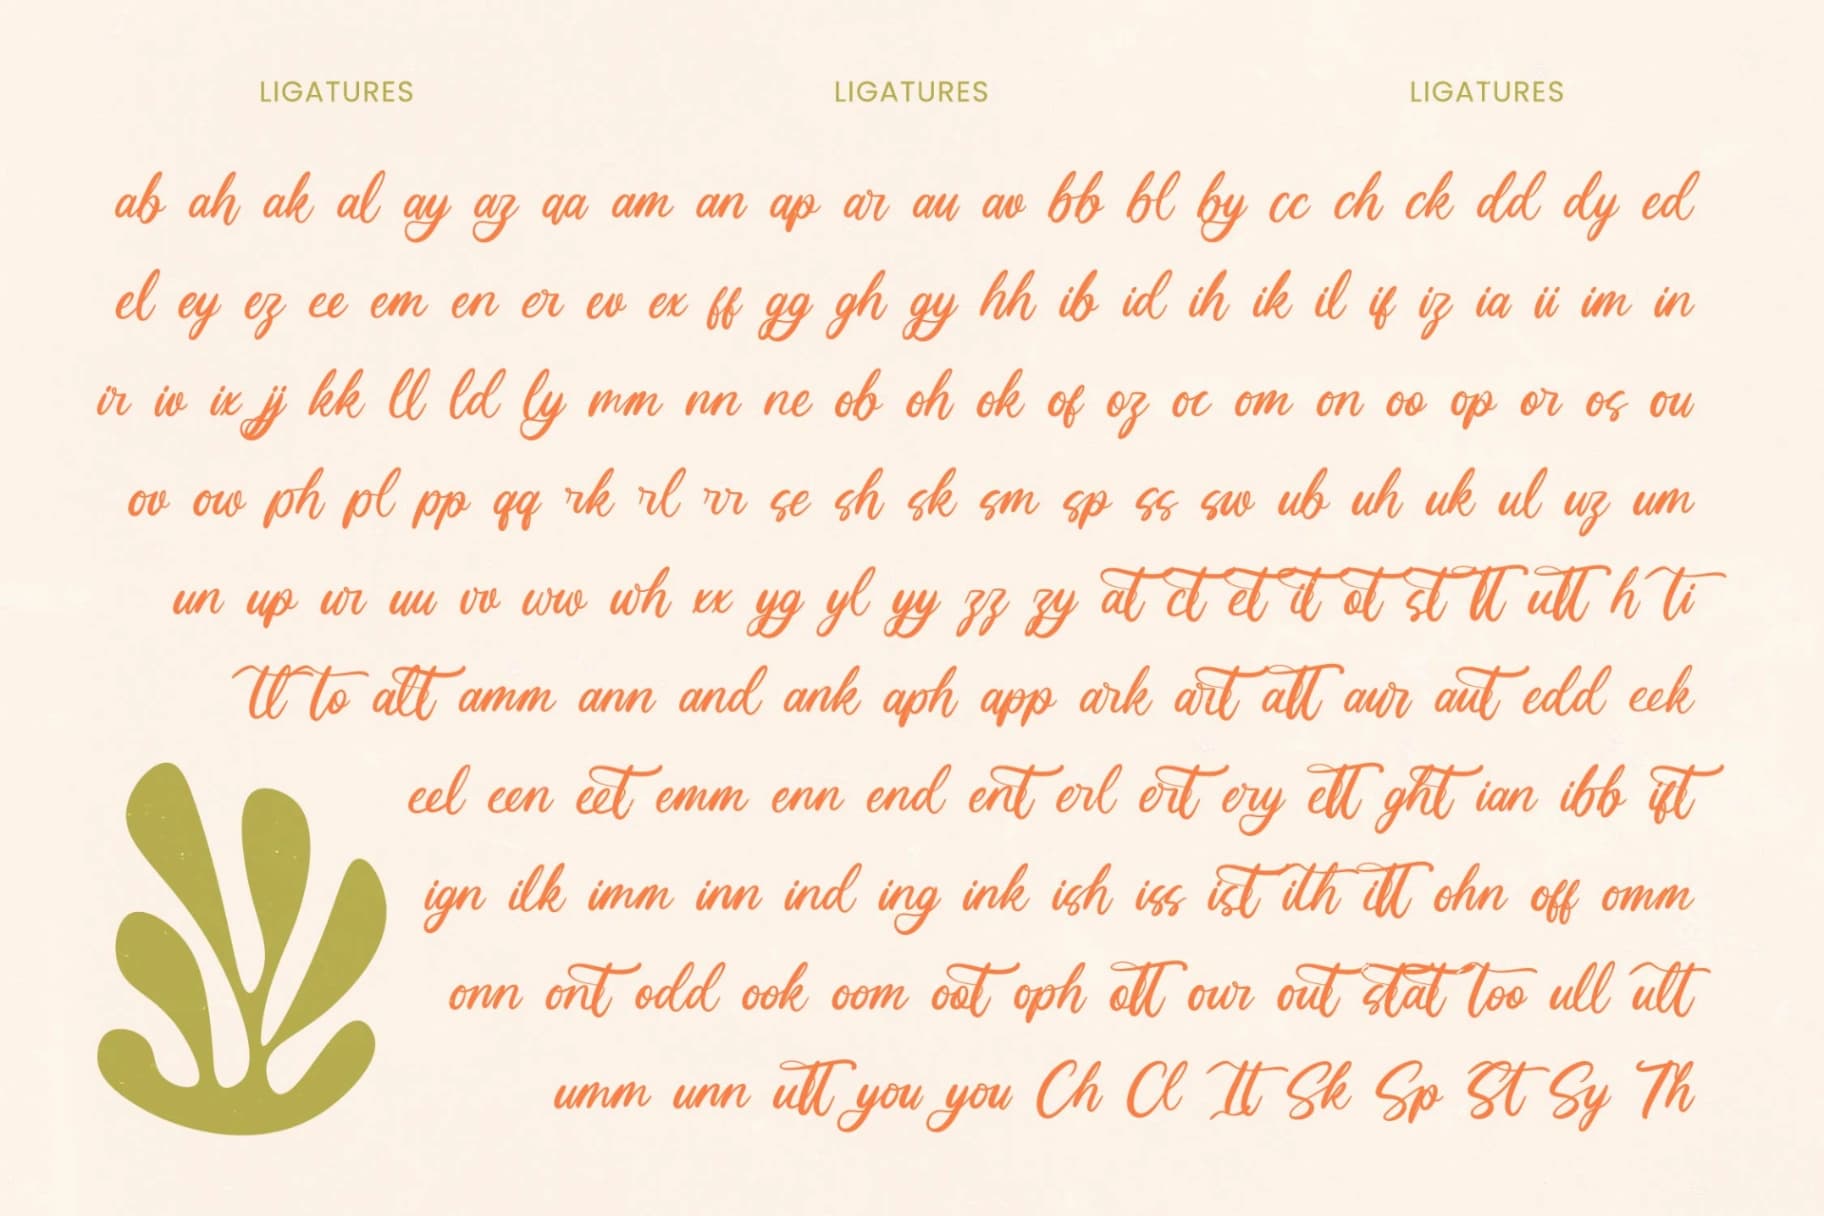 LIGATURES LIGATURES LIGATURES
ab ah ak al ay az aa am an ap ar au av bb bl by cc ch ck dd dy ed
el ey ez ee em en er ev ex ff gg gh gy hh ib id ih ik il if iz ia ii im in
ir iv ix jj kk ll ld ly mm nn ne ob oh ok of oz oc om on oo op or os ou
ov ow ph pl pp qq rk rl rr se sh sk sm sp ss sw ub uh uk ul uz um
un up ur uu vv ww wh xx yg yl yy zz zy at ct et it ot st tt utt h ti
tl to alt amm ann and ank aph app ark art att aur aut edd eek
eel een eet emm enn end ent erl ert ery ett ght ian ibb ift
ign ilk imm inn ind ing ink ish iss ist ith itt ohn off omm
onn ont odd ook oom oot oph ott our out stat too ull ult
umm unn utt you you Ch Cl It Sk Sp St Sy Th